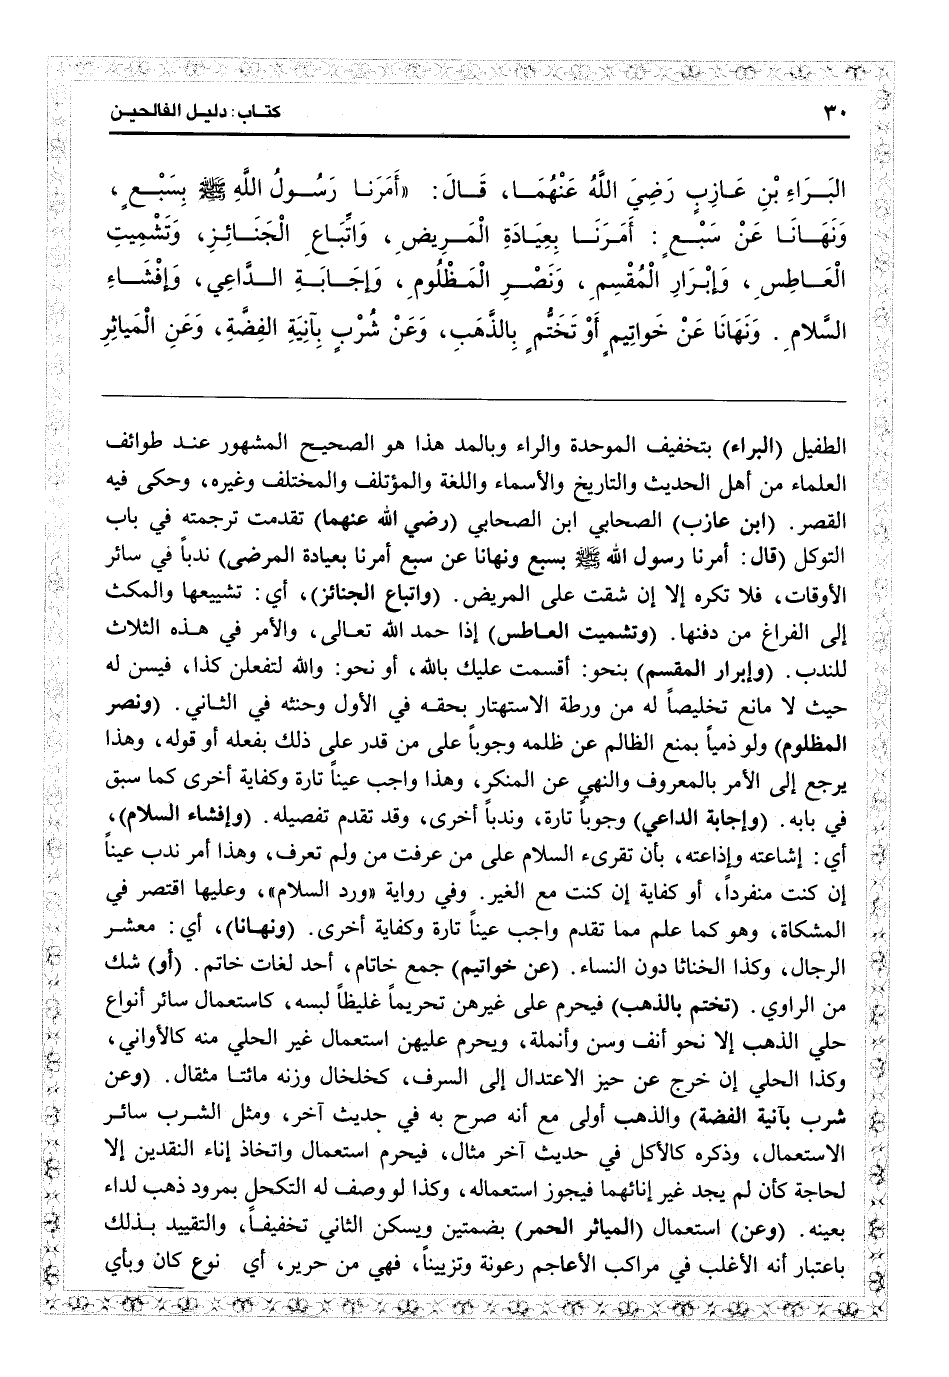 ٣٠
كتاب: دليل الفالحين
البَرَاءِ بْنِ عَازِبٍ رَضِيَ اللَّهُ عَنْهُمَا، قَالَ: «أَمَرَنا رَسُولُ اللَّهِ ﷺ بِسَبْعٍ،
وَنَهَانَا عَنْ سَبْعٍ: أَمَرَنَا بِعِيَادَةِ الْمَرِيضِ، وَاتِّبَاعِ الْجَنَائِزِ، وَتَشْمِيتِ
الْعَاطِسِ، وَإِبْرَارِ الْمُقْسِمِ، وَنَصْرِ الْمَظْلُومِ، وَإِجَابَةِ الدَّاعِي، وَإِفْشَاءِ
السَّلامِ. وَنَهَانَا عَنْ خَوَاتِيمٍ أَوْ تَخَتُّمٍ بِالذَّهَبِ، وَعَنْ شُرْبٍ بِآنِيَةِ الفِضَّةِ، وَعَنِ الْمَيَاثِرِ
الطفيل (البراء) بتخفيف الموحدة والراء وبالمد هذا هو الصحيح المشهور عند طوائف
العلماء من أهل الحديث والتاريخ والأسماء واللغة والمؤتلف والمختلف وغيره، وحكى فيه
القصر. (ابن عازب) الصحابي ابن الصحابي (رضي الله عنهما) تقدمت ترجمته في باب
التوكل (قال: أمرنا رسول الله ﷺ بسبع ونهانا عن سبع أمرنا بعيادة المرضى) ندباً في سائر
الأوقات، فلا تكره إلا إن شقت على المريض. (واتباع الجنائز)، أي: تشييعها والمكث
إلى الفراغ من دفنها. (وتشميت العاطس) إذا حمد الله تعالى، والأمر في هذه الثلاث
للندب. (وإبرار المقسم) بنحو: أقسمت عليك بالله، أو نحو: والله لتفعلن كذا، فيسن له
حيث لا مانع تخليصاً له من ورطة الاستهتار بحقه في الأول وحنثه في الثاني. (ونصر
المظلوم) ولو ذمياً بمنع الظالم عن ظلمه وجوباً على من قدر على ذلك بفعله أو قوله، وهذا
يرجع إلى الأمر بالمعروف والنهي عن المنكر، وهذا واجب عيناً تارة وكفاية أخرى كما سبق
في بابه. (وإجابة الداعي) وجوباً تارة، وندباً أخرى، وقد تقدم تفصيله. (وإفشاء السلام)،
أي: إشاعته وإذاعته، بأن تقرىء السلام على من عرفت من ولم تعرف، وهذا أمر ندب عيناً
إن كنت منفرداً، أو كفاية إن كنت مع الغير. وفي رواية «ورد السلام»، وعليها اقتصر في
المشكاة، وهو كما علم مما تقدم واجب عيناً تارة وكفاية أخرى. (ونهانا)، أي: معشر
الرجال، وكذا الخناثا دون النساء. (عن خواتيم) جمع خاتام، أحد لغات خاتم. (أو) شك
من الراوي. (تختم بالذهب) فيحرم على غيرهن تحريماً غليظاً لبسه، كاستعمال سائر أنواع
حلي الذهب إلا نحو أنف وسن وأنملة، ويحرم عليهن استعمال غير الحلي منه كالأواني،
وكذا الحلي إن خرج عن حيز الاعتدال إلى السرف، كخلخال وزنه مائتا مثقال. (وعن
شرب بآنية الفضة) والذهب أولى مع أنه صرح به في حديث آخر، ومثل الشرب سائر
الاستعمال، وذكره كالأكل في حديث آخر مثال، فيحرم استعمال واتخاذ إناء النقدين إلا
لحاجة كأن لم يجد غير إنائهما فيجوز استعماله، وكذا لو وصف له التكحل بمرود ذهب لداء
بعينه. (وعن) استعمال (المياثر الحمر) بضمتين ويسكن الثاني تخفيفاً، والتقييد بذلك
باعتبار أنه الأغلب في مراكب الأعاجم رعونة وتزييناً، فهي من حرير، أي نوع كان وبأي